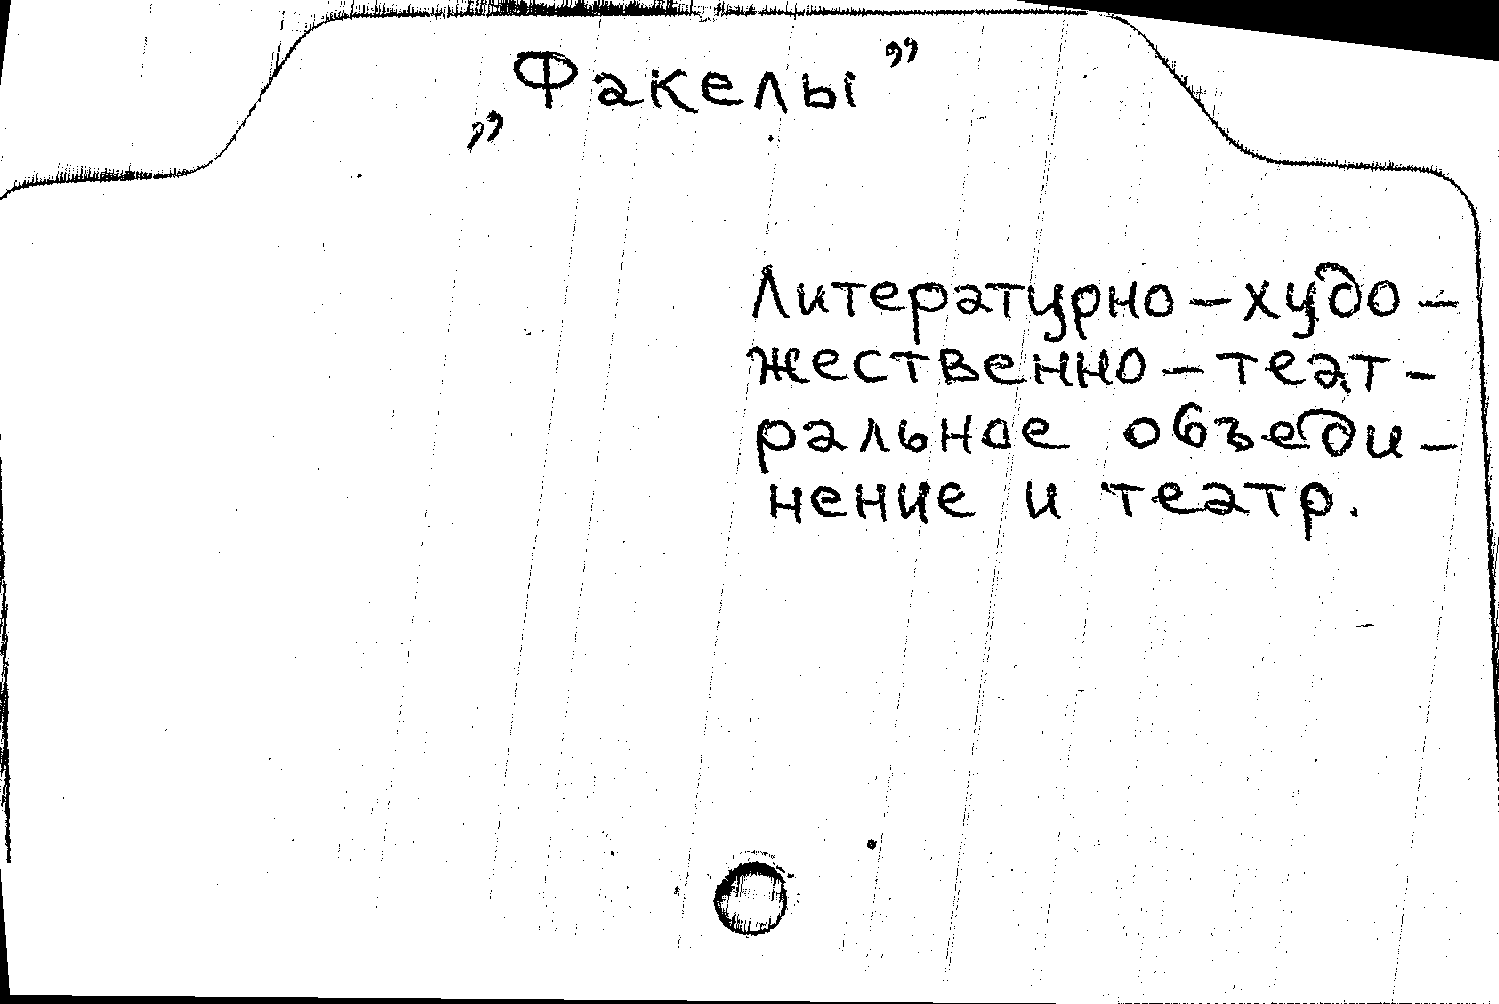 „Факелы”
Литературно-худо-
жественно-теат-
ральное объеди-
нение и театр.